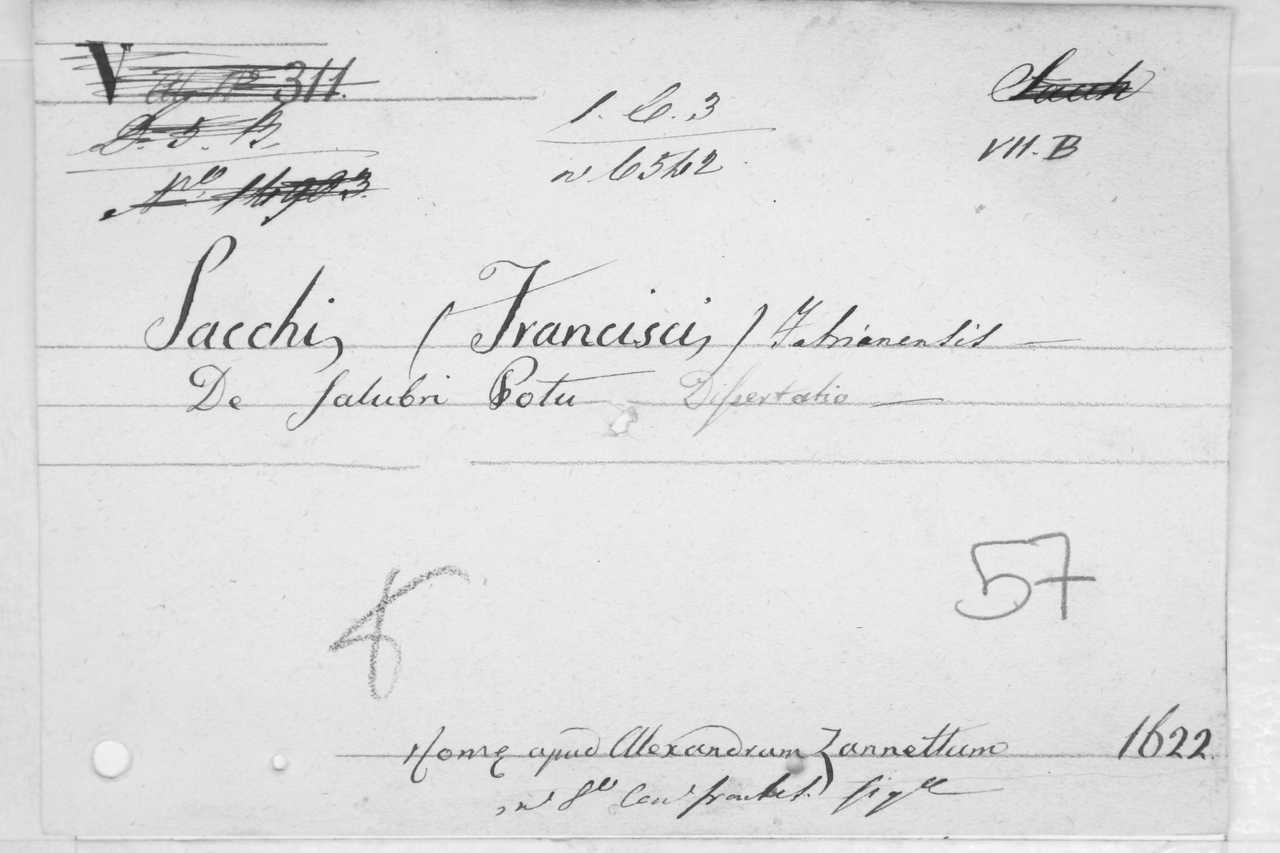 V 311.
D. 5. B.
1. C. 3
n 6542
VII. B
Sacchi, (Francisci,) Fabrianensis —
De salubri Potu Dissertatio —
57
8
Romę apud Alexandrum Zannettum 1622
in 8º Con frontesp.) figte